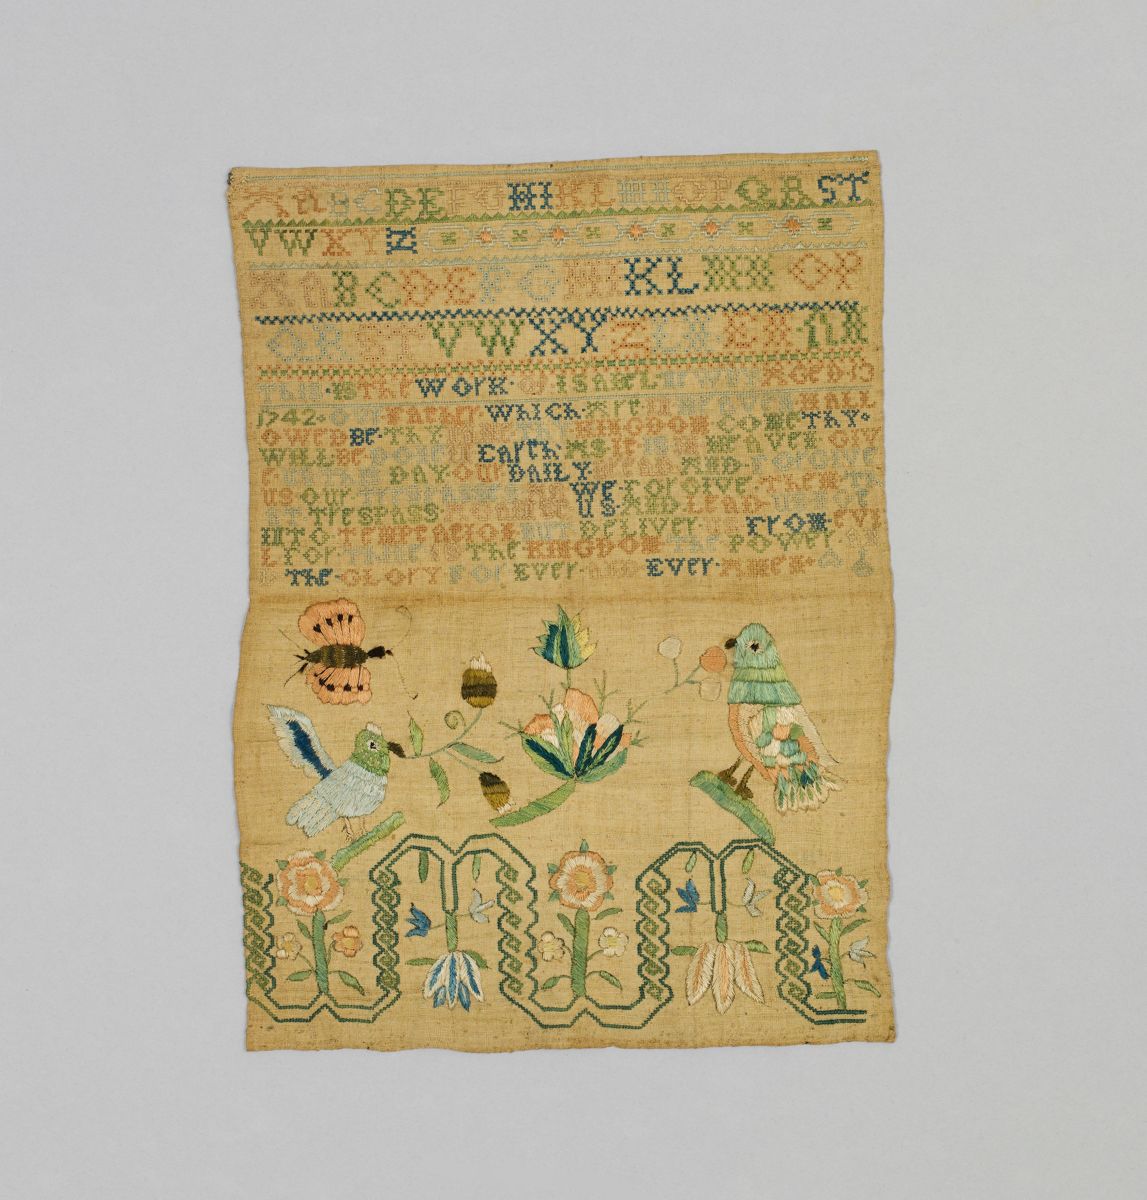 A A B C D E F G H I K L M N O P Q R S T
V W X Y Z
A A B C D E F G H I K L M N O P
Q R S T V W X Y Z
THIS · IS THE WORK · OF ISABEL · AGED 13
1742 · OUR FATHER WHICH · ART IN HEAVEN · HALL
OWED BE · THY KINGDOM COME THY ·
WILL BE DONE IN EARTH · AS IT IS IN HEAVEN GIV
DAY · OUR DAILY BREAD AND · FORGIVE
US OUR · TRESPASSES AS WE · FORGIVE · THEM
TRESPASS AGAINST US · AND LEAD ·
INTO · TEMPTATION BUT DELIVER US FROM · EVI
L FOR · THINE IS THE KINGDOM THE POWER AN
D THE · GLORY FOR EVER · AND EVER · AMEN ·